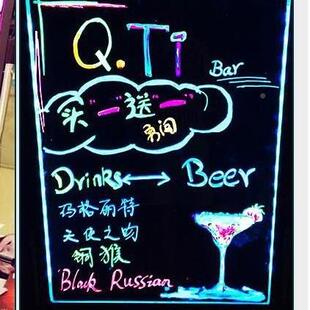 Q.Ti
Bar
买"一"送"一"
Drinks ↔ Beer
玛格丽特
天使之吻
铜猴
Black Russian